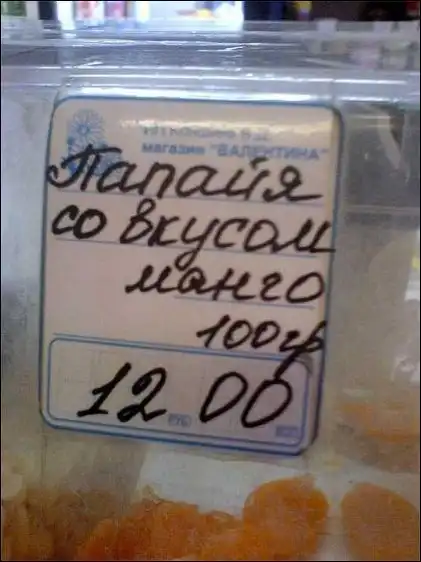 магазин "ВАЛЕНТИНА"
Папайя
со вкусом
манго
100гр
12 00